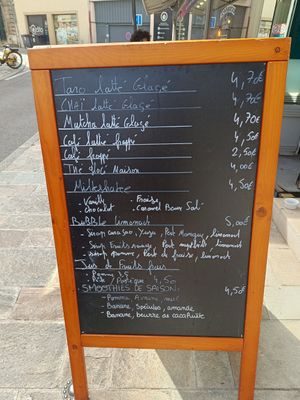 Taro latté Glacé 4,70€
CHAï latté Glacé 4,70€
Matcha latté Glacé 4,70€
Café latté frappé 4,50€
Café frappé 2,50€
Thé glacé Maison 4,00€
Milkshake 4,50€
- Vanille - Fraise
- chocolat - Caramel Beurre Salé
BuBBle limonade 5,00€
- Sirop curaçao, Yuzu, Perle Mangue, limonade
- Sirop Fruits rouge, Perle myrtille, limonade
- sirop pomme, Perle de fraise, limonade
Jus de Fruits frais
4,50
SMOOTHIES DE SAISON: 4,50€
- Pomme, Avoine, miel
- Banane, Spéculos, amande
- Banane, beurre de cacahuète